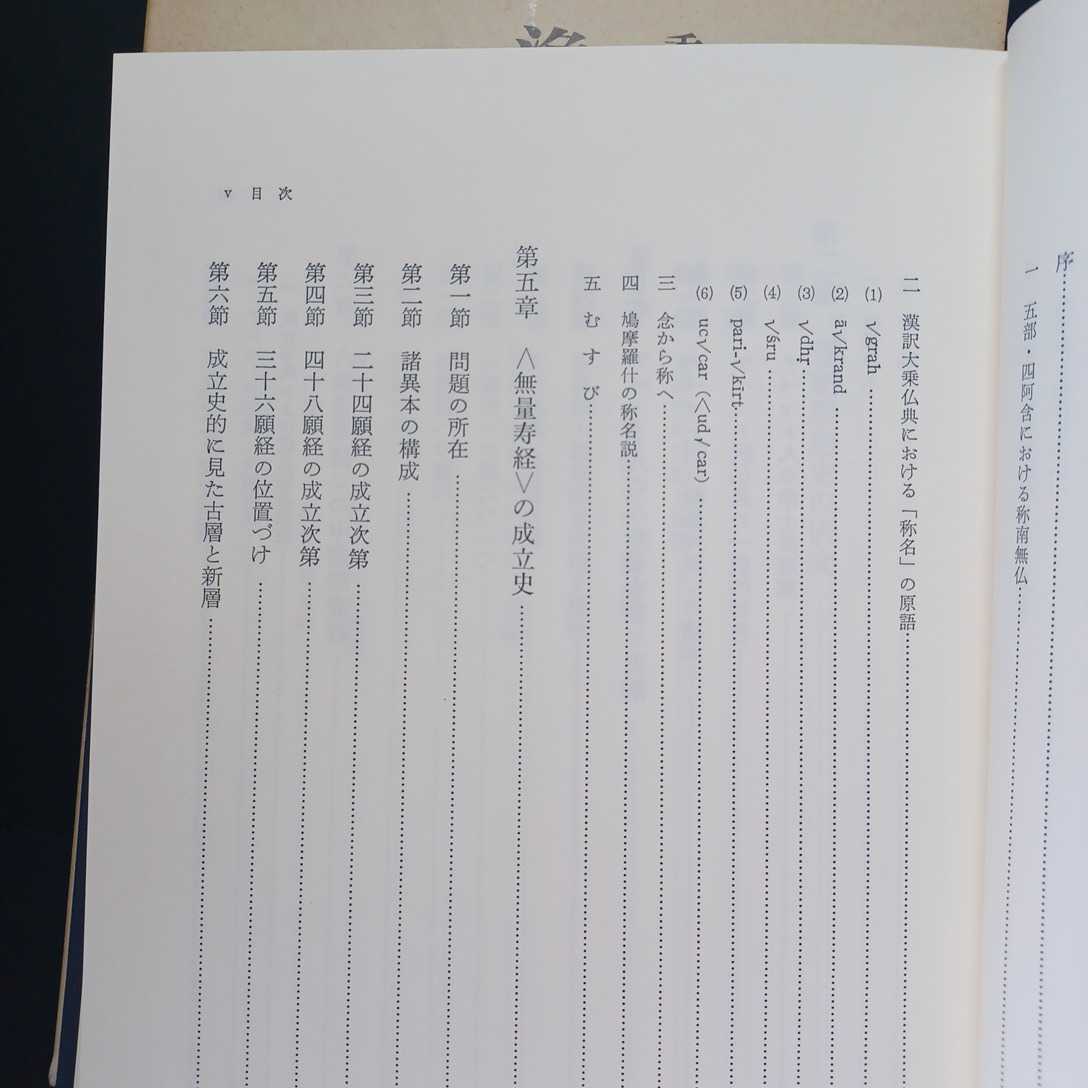 序
一 五部・四阿含における称南無仏
v 目次
二 漢訳大乗仏典における「称名」の原語
(1) √grah
(2) ā√krand
(3) √dhṛ
(4) √śru
(5) pari-√kīrt
(6) uc√car (<ud√car)
三 念から称へ
四 鳩摩羅什の称名説
五 むすび
第五章 <無量寿経>の成立史
第一節 問題の所在
第二節 諸異本の構成
第三節 二十四願経の成立次第
第四節 四十八願経の成立次第
第五節 三十六願経の位置づけ
第六節 成立史的に見た古層と新層